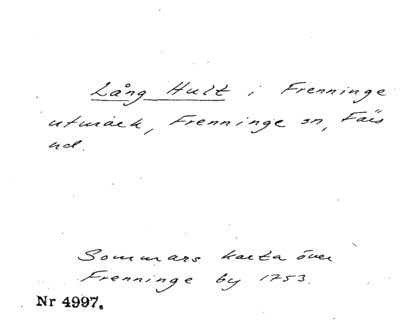 Lång Hult i Frenninge
utmark, Frenninge sn, Färs
hd.
Sommars karta över
Frenninge by 1753.
Nr 4997.